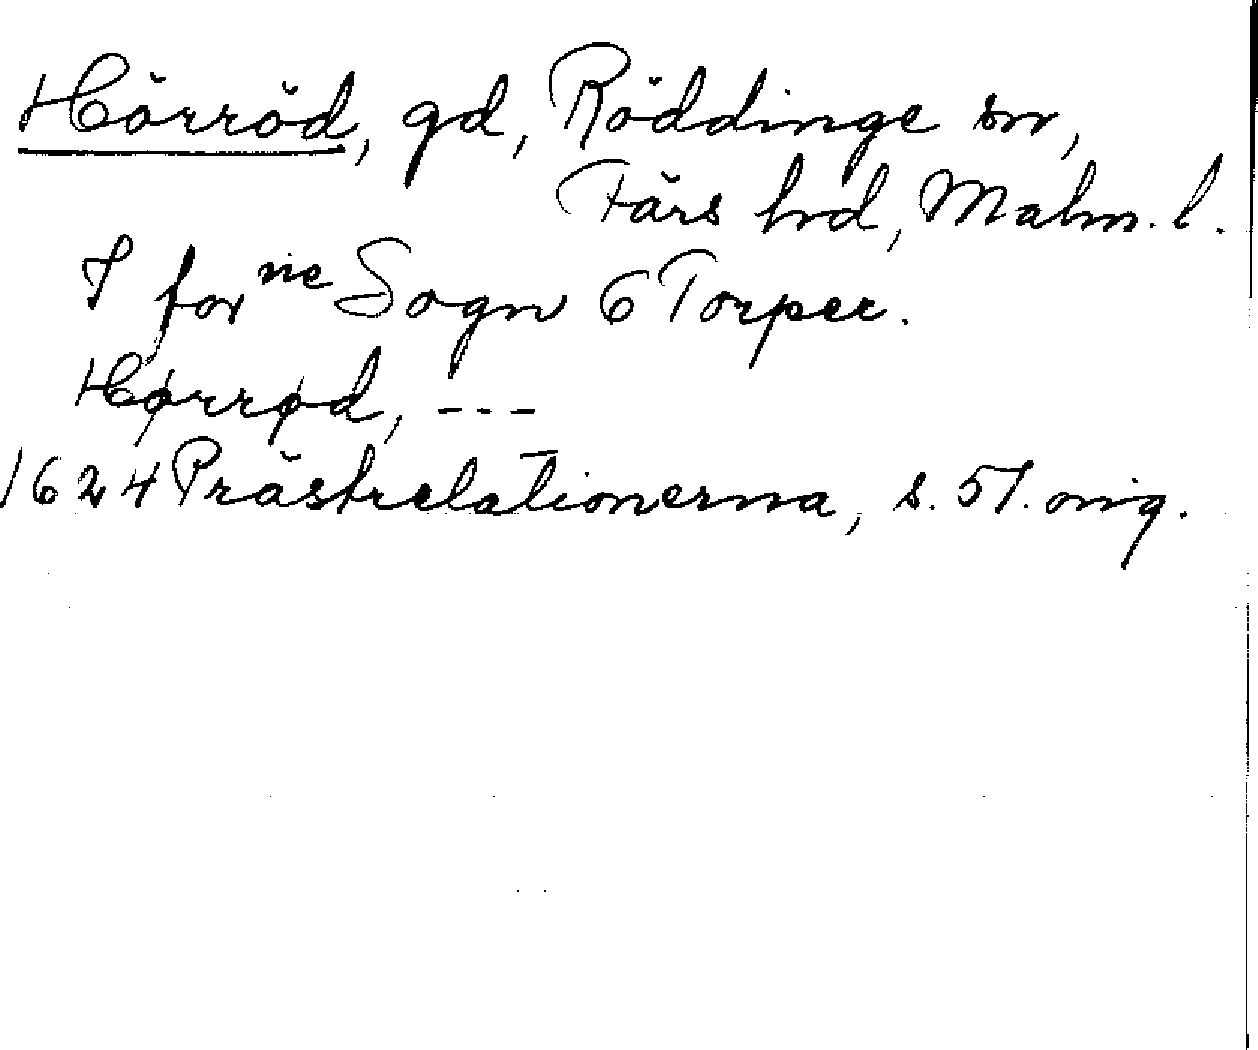 Hörröd, gd, Röddinge sn,
Färs hrd, Malm. l.
I for ne Sogn 6 Torper.
Hørrød, ---
1624 Prästrelationerna, s. 57. orig.